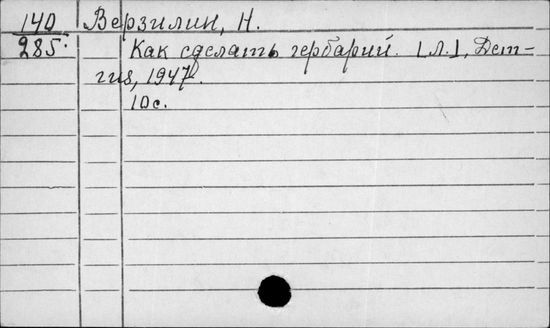 140 Верзилин, Н.
285. Как сделать гербарий. [Л.], Дет-
гиз, 1947.
10 с.